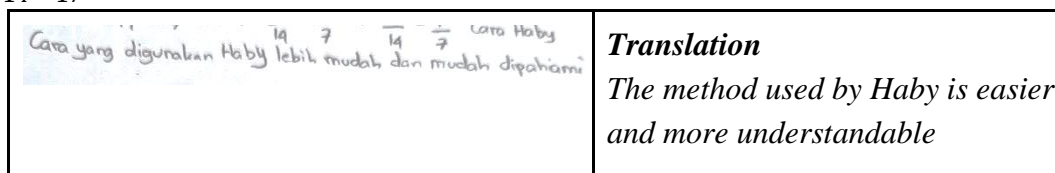 14 7 14 7 Cara Haby
Cara yang digunakan Haby lebih mudah dan mudah dipahami
Translation
The method used by Haby is easier
and more understandable